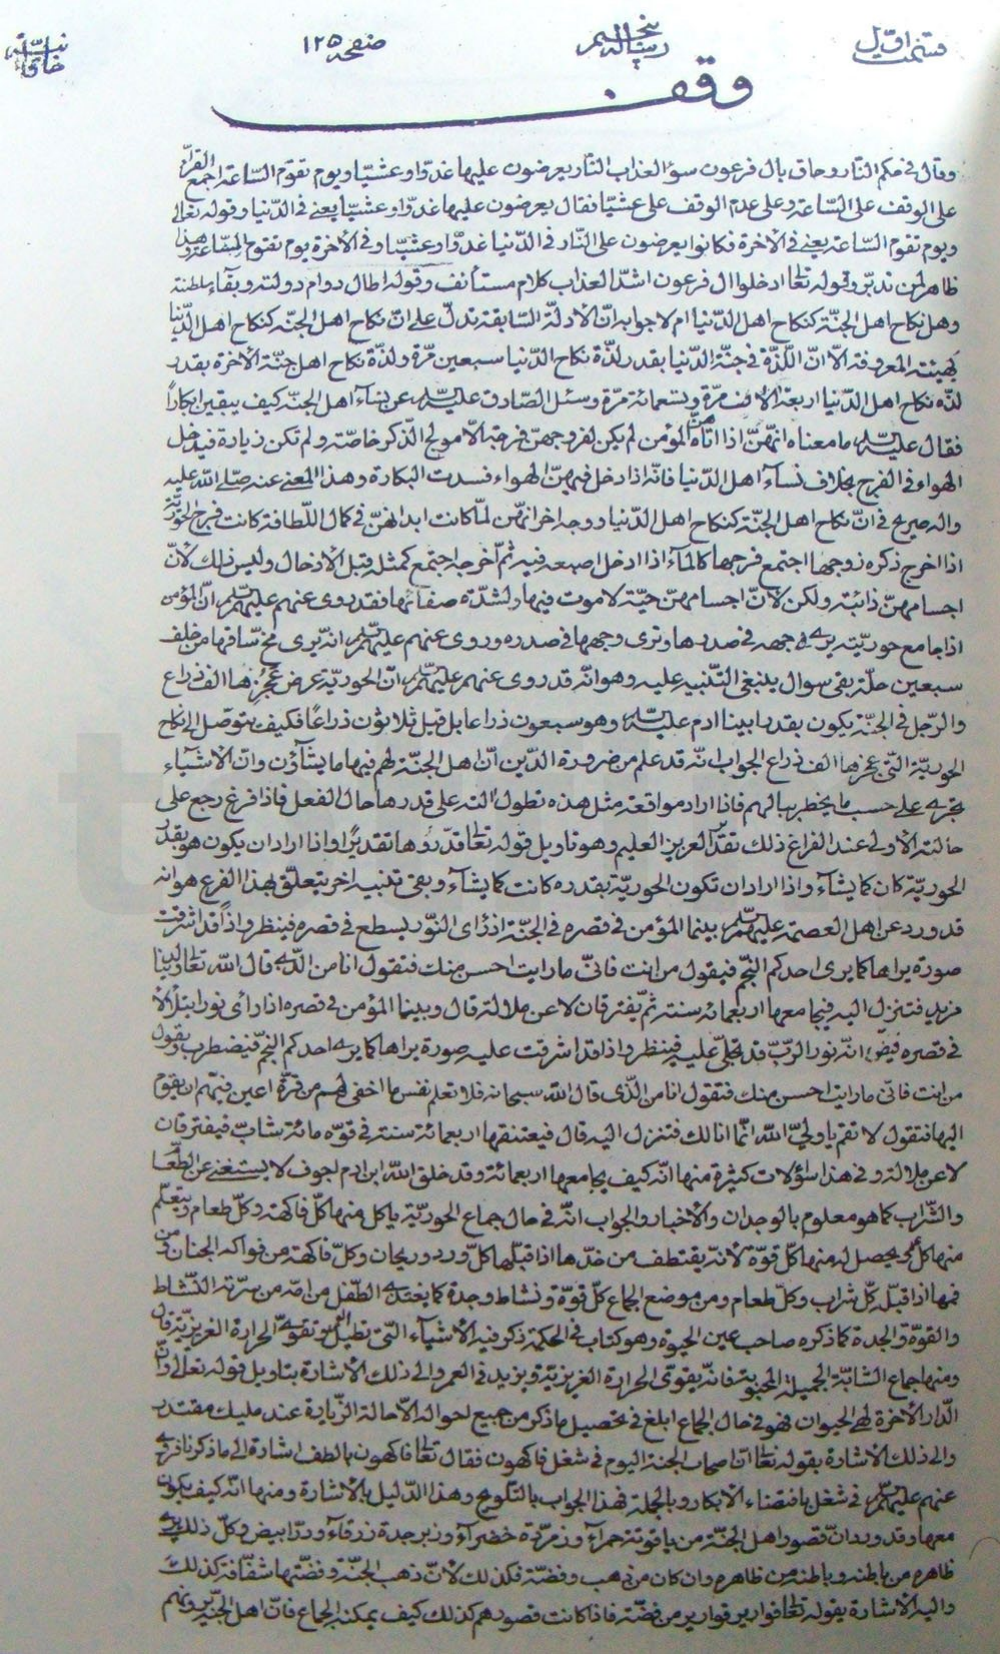 قسمت اول رساله پنجم صفحه ١٢٥
وقف
وقال في حكم النار وحاق بال فرعون سوء العذاب النار يعرضون عليها غدوّا وعشيّا ويوم تقوم السّاعة اجمع القرّاء
على الوقف على السّاعة وعلى عدم الوقف على عشيّا فقال يعرضون عليها غدوّا وعشيّا يعني في الدنيا وقوله تعالى
ويوم تقوم السّاعة يعني في الآخرة فكانوا يعرضون على النّار في الدّنيا غدوّا وعشيّا وفي الآخرة يوم تقوم السّاعة وهذا
ظاهر لمن تدبّر وقوله تعالى ادخلوا ال فرعون اشدّ العذاب كلام مستأنف وقوله اطال دوام دولته وبقاء سلطنته
وهل نكاح اهل الجنّة كنكاح اهل الدّنيا ام لا جوابه انّ الادلّة السّابقة تدلّ على انّ نكاح اهل الجنّة كنكاح اهل الدّنيا
بهيئته المعروفة الّا انّ اللّذّة في جنّة الدّنيا بقدر لذّة نكاح الدّنيا سبعين مرّة ولذّة نكاح اهل جنّة الآخرة بقدر
لذّة نكاح اهل الدّنيا اربعة الاف مرّة وتسعمائة مرّة وسئل الصّادق عليه السّلم عن نساء اهل الجنّة كيف يبقين ابكاراً
فقال عليه السّلم ما معناه انّهنّ اذا اتاهنّ المؤمن لم يكن لفروجهنّ فرجة الّا مولج الذّكر خاصّة ولم تكن زيادة فيدخل
الهواء في الفرج بخلاف نساء اهل الدّنيا فانّه اذا دخل فيهنّ الهواء فسدت البكارة وهذا المعنى عنه صلّى اللّه عليه
واله صريح في انّ نكاح اهل الجنّة كنكاح اهل الدّنيا ووجه اخر انّهنّ لمّا كانت ابدانهنّ في كمال اللّطافة كانت فرج الحوريّة
اذا اخرج ذكره زوجها اجتمع فرجها كالماء اذا ادخل اصبعه فيه ثمّ اخرجه اجتمع كمثله قبل الادخال وليس ذلك لانّ
اجسامهنّ ذائبة ولكن لانّ اجسامهنّ حيّة لا موت فيها ولشدّة صفائها فقد روى عنهم عليهم السّلم انّ المؤمن
اذا جامع حوريّته يرى وجهه في صدرها وترى وجهها في صدره وروى عنهم عليهم السّلم انه يرى مخّ ساقها من خلف
سبعين حلّة بقى سوال ينبغي التّنبيه عليه وهو انّه قد روى عنهم عليهم السّلم انّ الحوريّة عرض عجزها الف ذراع
والرّجل في الجنّة يكون بقدر ابينا ادم عليه السّلم وهو سبعون ذراعا بل قيل ثلاثون ذراعًا فكيف يتوصّل الى نكاح
الحوريّة التي عجزها الف ذراع الجواب انّه قد علم من ضرورة الدّين انّ اهل الجنّة لهم فيها ما يشاؤن وانّ الاشياء
تجرى على حسب ما يخطر ببالهم فاذا اراد مواقعة مثل هذه تطول الته على قدرها حال الفعل فاذا فرغ رجع على
حالته الاولى عند الفراغ ذلك تقدير العزيز العليم وهو تاويل قوله تعالى قدّروها تقديرًا واذا اراد ان يكون هو بقدر
الحوريّة كان كما يشاء واذا اراد ان تكون الحوريّة بقدره كانت كما يشاء وبقى تنبيه اخر يتعلّق بهذا الفرع هو انه
قد ورد عن اهل العصمة عليهم السّلم بينما المؤمن في قصره في الجنّة اذ راى النّور يسطع في قصره فينظر واذاً قد اشرقت
صورة يراها كما يرى احدكم النّجم فيقول من انت فانّى ما رايت احسن منك فتقول انا من الّذى قال اللّه تعالى ولدينا
مزيد فتنزل اليه فيجامعها اربعمائة سنة ثمّ يفترقان لا عن ملالة قال وبينما المؤمن في قصره اذا رأى نورا يتلألأ
في قصره فيظنّ انّه نور الرّبّ قد تجلّى عليه فينظر واذا قد اشرقت عليه صورة يراها كما يرى احدكم النجم فيضطرب ويقول
من انت فانّى ما رايت احسن منك فتقول انا من الّذى قال اللّه سبحانه فلا تعلم نفس ما اخفى لهم من قرّة اعين فيهمّ ان يقوم
اليها فتقول لا تقم يا ولىّ اللّه انّما انا لك فتنزل اليه قال فيعتنقها اربعمائة سنة في قوّة مائة شابّ فيفترقان
لا عن ملالة وفي هذا سؤالات كثيرة منها انّه كيف يجامعها اربعمائة وقد خلق اللّه ابن ادم اجوف لا يستغني عن الطّعام
والشّراب كما هو معلوم بالوجدان والاخبار والجواب انّه في حال جماع الحوريّة ياكل منها كلّ فاكهة وكلّ طعام ويتعلّم
منها كلّ ويحصل له منها كلّ قوّة لانّه يقتطف من خدّها اذا قبّلها كلّ ورد وريحان وكلّ فاكهة من فواكه الجنان ومن
فمها اذا قبّله كلّ شراب وكلّ طعام ومن موضع الجماع كلّ قوّة ونشاط وجدة كما يغتذى الطّفل من امّه من سرّته النّشاط
والقوّة والجدة كما ذكره صاحب عين الحيوة وهو كتاب في الحكمة ذكر فيه الاشياء الّتى تطيل العمر وتقوّى الحرارة الغريزيّة قال
ومنها جماع الشابّة الجميلة المحبوبة فانّه يقوّى الحرارة الغريزيّة ويزيد في العمر والى ذلك الاشارة بتاويل قوله تعالى وانّ
الدّار الآخرة لهى الحيوان فهو في حال الجماع ابلغ في تحصيل ما ذكر من جميع احواله الّا حالة الزّيارة عند مليك مقتدر
والى ذلك الاشارة بقوله تعالى انّ اصحاب الجنة اليوم في شغل فاكهون فقال تعالى فاكهون بالطف اشارة الى ما ذكرنا فروى
عنهم عليهم السّلم في شغل بافتضاء الابكار وبالجملة فهذا الجواب بالتّلويح وهذا الدّليل بالاشارة ومنها انّه كيف يكون
معها وقد ورد انّ قصور اهل الجنّة من ياقوتة حمراء وزمرّدة خضراء وزبرجدة زرقاء ودرّة بيضاء وكلّ ذلك يرى
ظاهره من باطنه وباطنه من ظاهره وان كان من ذهب وفضّة فكذلك لانّ ذهب الجنّة وفضّتها شفّافة كذلك
واليه الاشارة بقوله تعالى قوارير قوارير من فضّة فاذا كانت قصورهم كذلك كيف يمكنه الجماع فانّ اهل الجنّة يرونهم